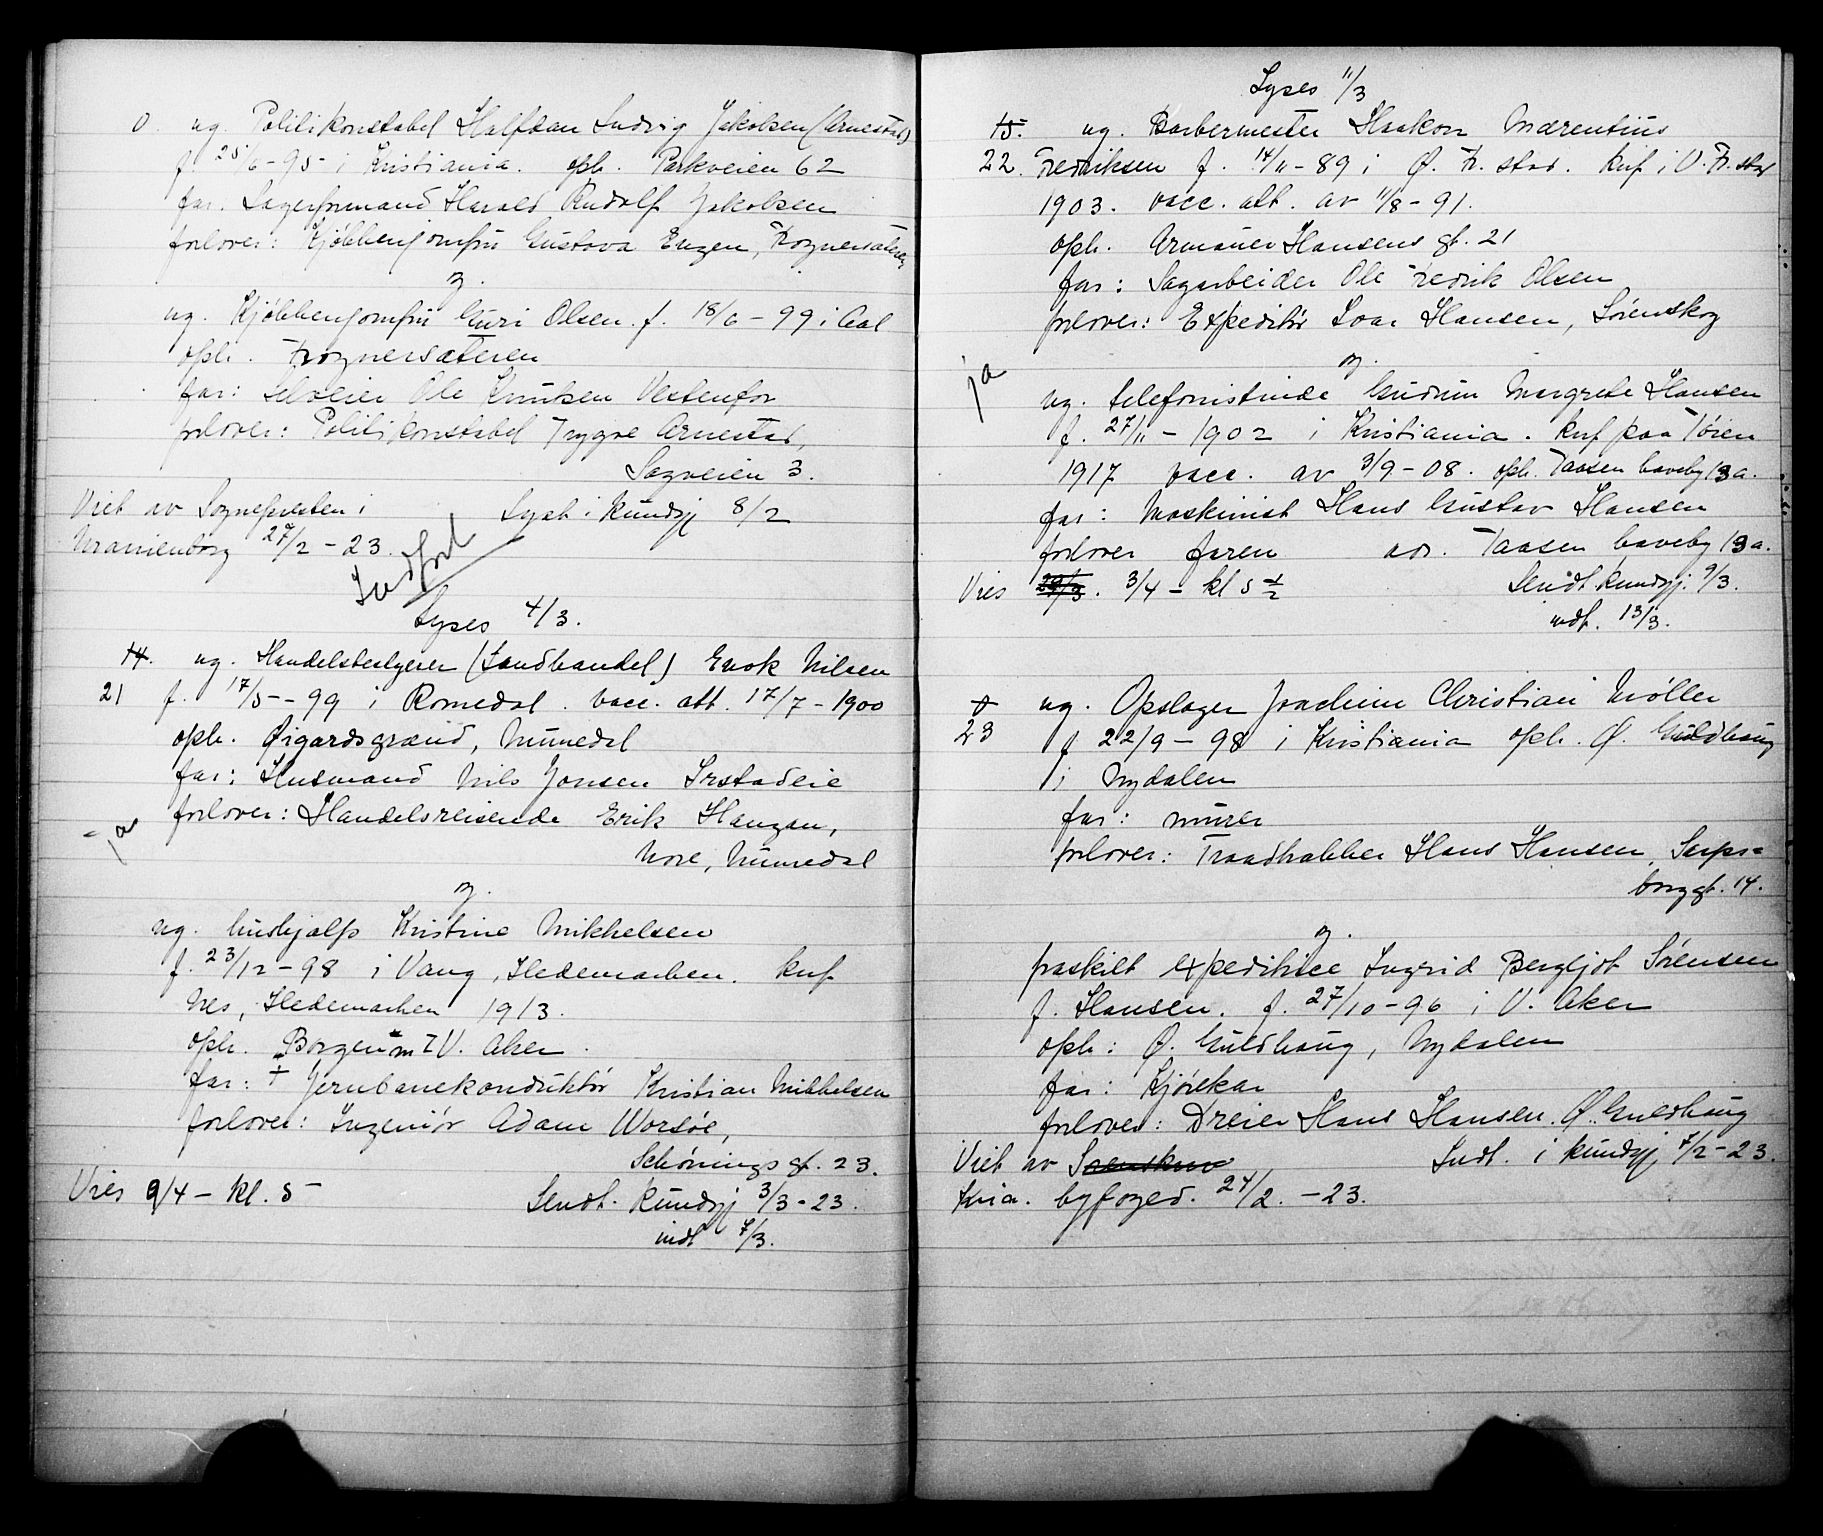 0. ug. Politikonstabel Halfdan Ludvig Jakobsen (Arnestad)
f. 25/6-95 i Kristiania. oph. Parkveien 62
far. Lagerformand Harald Rudolf Jakobsen
forlover: Kjøkkenjomfru Gustava Engen, Frognersæteren
og.
ug. Kjøkkenjomfru Guri Olsen. f. 18/6-99 i Aal
oph. Frognersæteren
far: selveier Ole Knutsen Vestenfor
forlover: Politikonstabel Trygve Arnestad,
Sagveien 3.
Viet av Sognepresten i Lyst i kundgj 8/2
Uranienborg 27/2-23.
Indført
Lyses 4/3.
14. ug. Handelsbestyrer (Landhandel) Enok Nilsen
21 f. 17/5-99 i Romedal. vacc. att. 17/7-1900
oph. Øigardsgrænd, Numedal
far: Husmand Nils Jonsen
forlover: Handelsreisende Erik Haugan,
ja
Nore, Numedal
og.
ug. hushjælp Kristine Mikkelsen
f. 23/12-98 i Vang, Hedemarken. knf
Nes, Hedemarken 1913.
oph. Borgen V. Aker.
far: + Jernbanekonduktør Kristian Mikkelsen
forlover: Ingeniør Adam Worsøe,
Schønings gt. 23.
Vies 9/4 - kl. 5 - Sendt. Kundgj 3/3-23.
indt 7/3.
Lyses 11/3
15. ug. Barbermester Haakon Marentius
22. Fredriksen f. 14/11-89 i Ø. Fr. stad. knf i V. Fr. stad
1903. vacc. att. av 11/8-91.
oph. Armauer Hansens gt. 21
far: Sagarbeider Ole Fredrik Olsen
forlover: Expeditør Ivar Hansen, Lørenskog
og.
ja
ug. telefonistinde Gudrun Margrete Hansen
f. 27/11-1902 i Kristiania. knf paa Tøien
1917 vacc. av 3/9-08. oph. Taasen haveby 13a.
far: Maskinist Hans Gustav Hansen
forlover faren adr. Taasen haveby 13a.
Vies 3/4 - kl 5 1/2 Sendt kundgj. 9/3.
indt. 13/3.
0 ug. Opslager Joachim Christian Møller
23 f 22/9-98 i Kristiania oph. Ø. Guldhaug
i Nydalen
far: murer
forlover: Traadtrækker Hans Hansen, Sarps=
borggt. 14.
og.
fraskilt expeditrice Ingrid Bergljot Sørensen
f. Hansen. f. 27/10-96 i V. Aker
oph: Ø. Guldhaug, Nydalen
far: Kjørekar
forlover: Dreier Hans Hansen. Ø. Guldhaug
Viet av Indt. i kundgj 7/2-23.
Kria. byfoged. 24/2.-23.